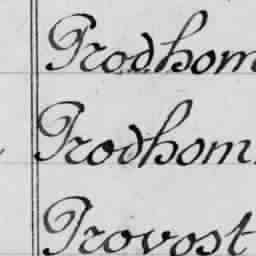 Prodhom
Prodhom
Provost